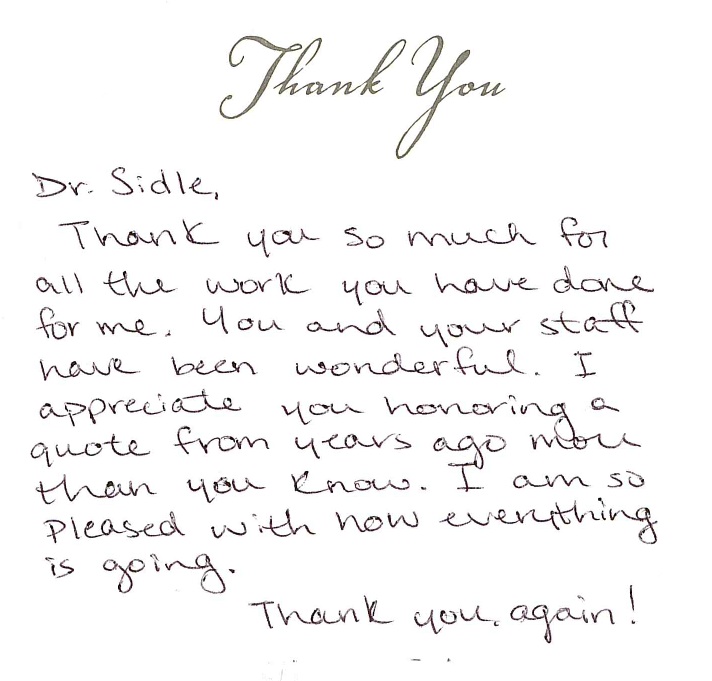 Thank You
Dr. Sidle,
Thank you so much for
all the work you have done
for me. You and your staff
have been wonderful. I
appreciate you honoring a
quote from years ago more
than you know. I am so
pleased with how everything
is going.
Thank you, again!